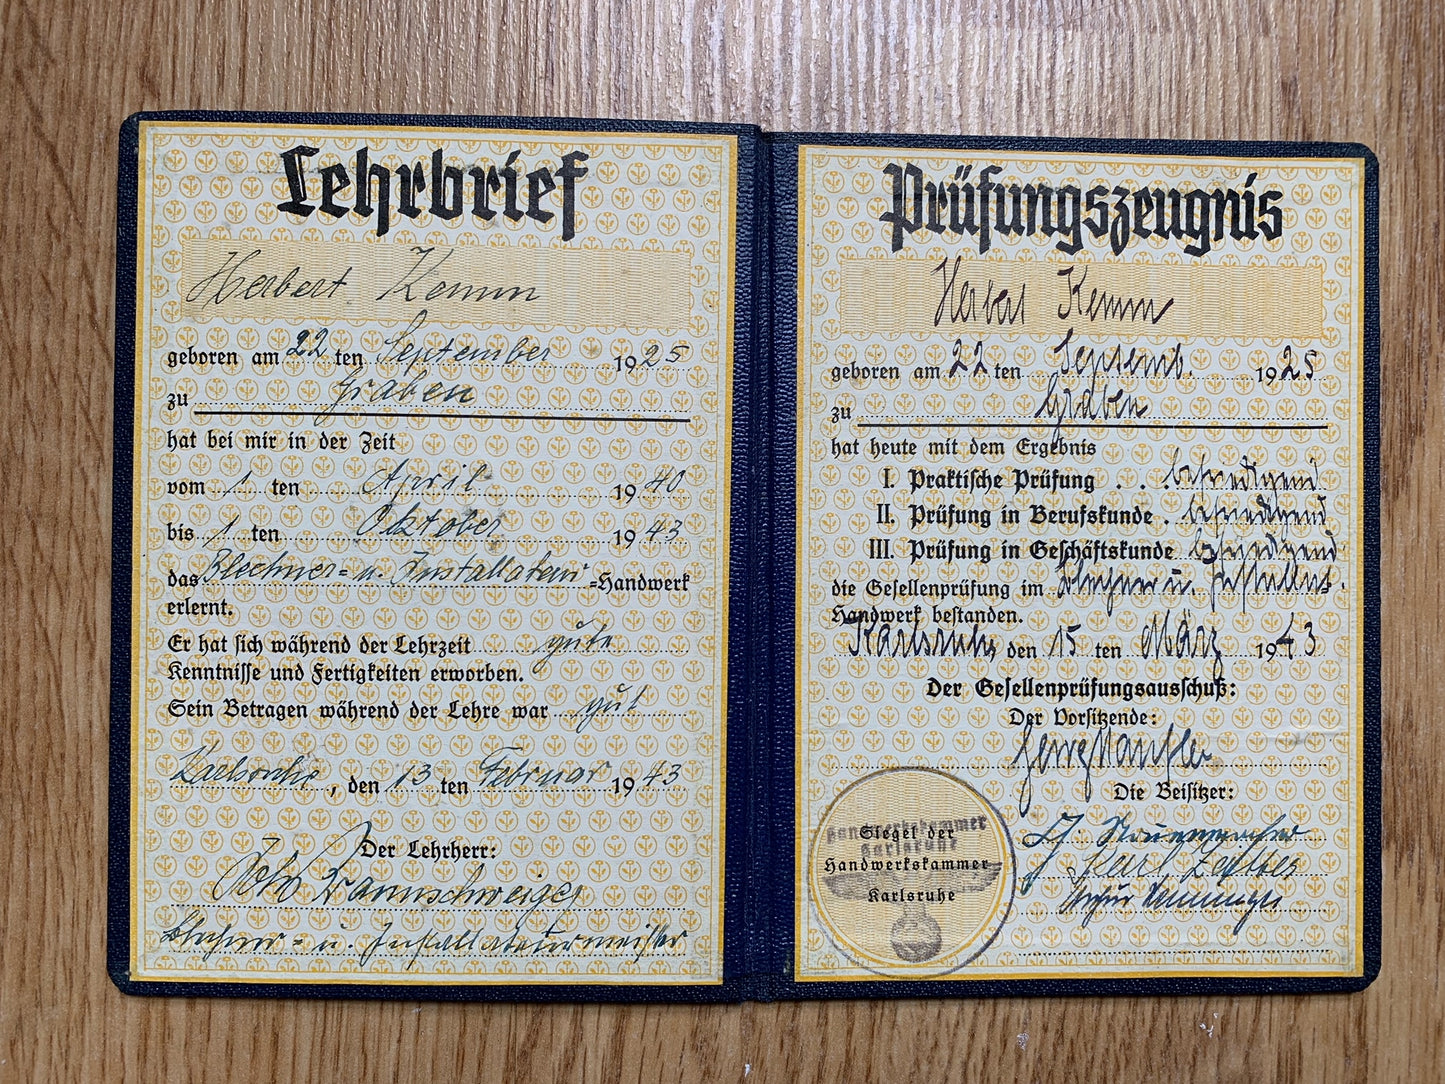 Lehrbrief
Herbert Kemm
geboren am 22 ten September 1925
zu Graben
hat bei mir in der Zeit
vom 1 ten April 1940
bis 1 ten Oktober 1943
das Blechner- u. Installateur-Handwerk
erlernt.
Er hat sich während der Lehrzeit gute
Kenntnisse und Fertigkeiten erworben.
Sein Betragen während der Lehre war gut
Karlsruhe, den 13 ten Februar 1943
Der Lehrherr:
Braunschweiger
Blechner- u. Installateurmeister
Prüfungszeugnis
Herbert Kemm
geboren am 22 ten Septemb. 1925
zu Graben
hat heute mit dem Ergebnis
I. Praktische Prüfung . . befriedigend
II. Prüfung in Berufskunde . befriedigend
III. Prüfung in Geschäftskunde befriedigend
die Gesellenprüfung im Blechner u. Installat.
Handwerk bestanden.
Karlsruhe, den 15 ten März 1943
Der Gesellenprüfungsausschuß:
Der Vorsitzende:
Die Beisitzer:
Karl
Handwerkskammer
Karlsruhe
Siegel der
Handwerkskammer
Karlsruhe